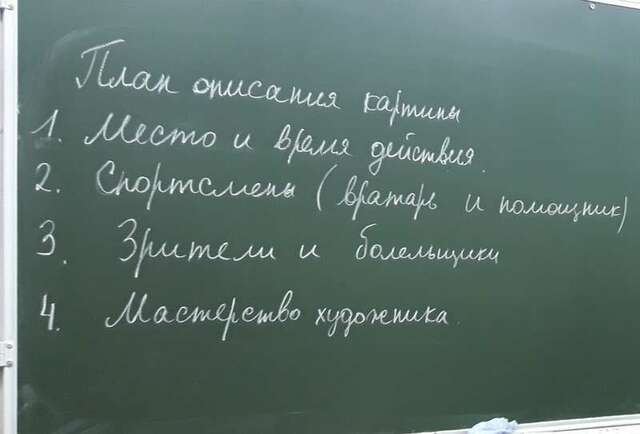 План описания картины
1. Место и время действия.
2. Спортсмены (вратарь и помощник)
3. Зрители и болельщики
4. Мастерство художника.